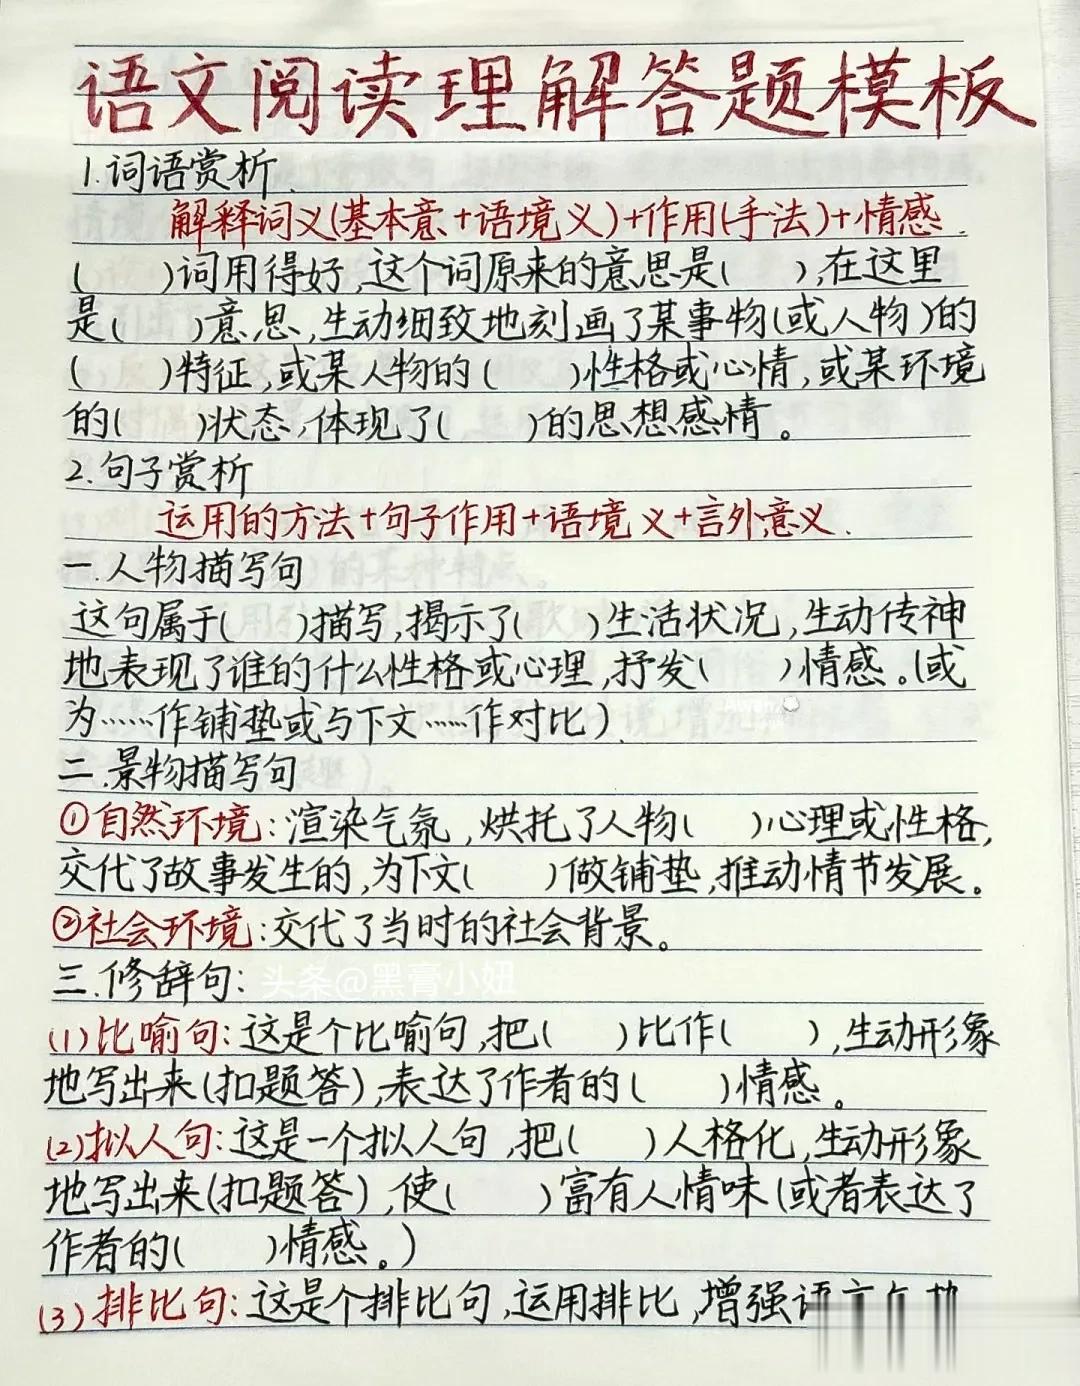 语文阅读理解答题模板
1.词语赏析.
解释词义(基本意+语境义)+作用(手法)+情感.
(  )词用得好,这个词原来的意思是(  ),在这里
是(  )意思,生动细致地刻画了某事物(或人物)的
(  )特征,或某人物的(  )性格或心情,或某环境
的(  )状态,体现了(  )的思想感情。
2.句子赏析
运用的方法+句子作用+语境义+言外意义.
一.人物描写句
这句属于(  )描写,揭示了(  )生活状况,生动传神
地表现了谁的什么性格或心理,抒发(  )情感。(或
为……作铺垫或与下文……作对比)
二.景物描写句
①自然环境:渲染气氛,烘托了人物(  )心理或性格,
交代了故事发生的,为下文(  )做铺垫,推动情节发展。
②社会环境:交代了当时的社会背景。
三.修辞句:
头条@黑膏小妞
(1)比喻句:这是个比喻句,把(  )比作(  ),生动形象
地写出来(扣题答),表达了作者的(  )情感。
(2)拟人句:这是一个拟人句,把(  )人格化,生动形象
地写出来(扣题答),使(  )富有人情味(或者表达了
作者的(  )情感。)
(3)排比句:这是个排比句,运用排比,增强语